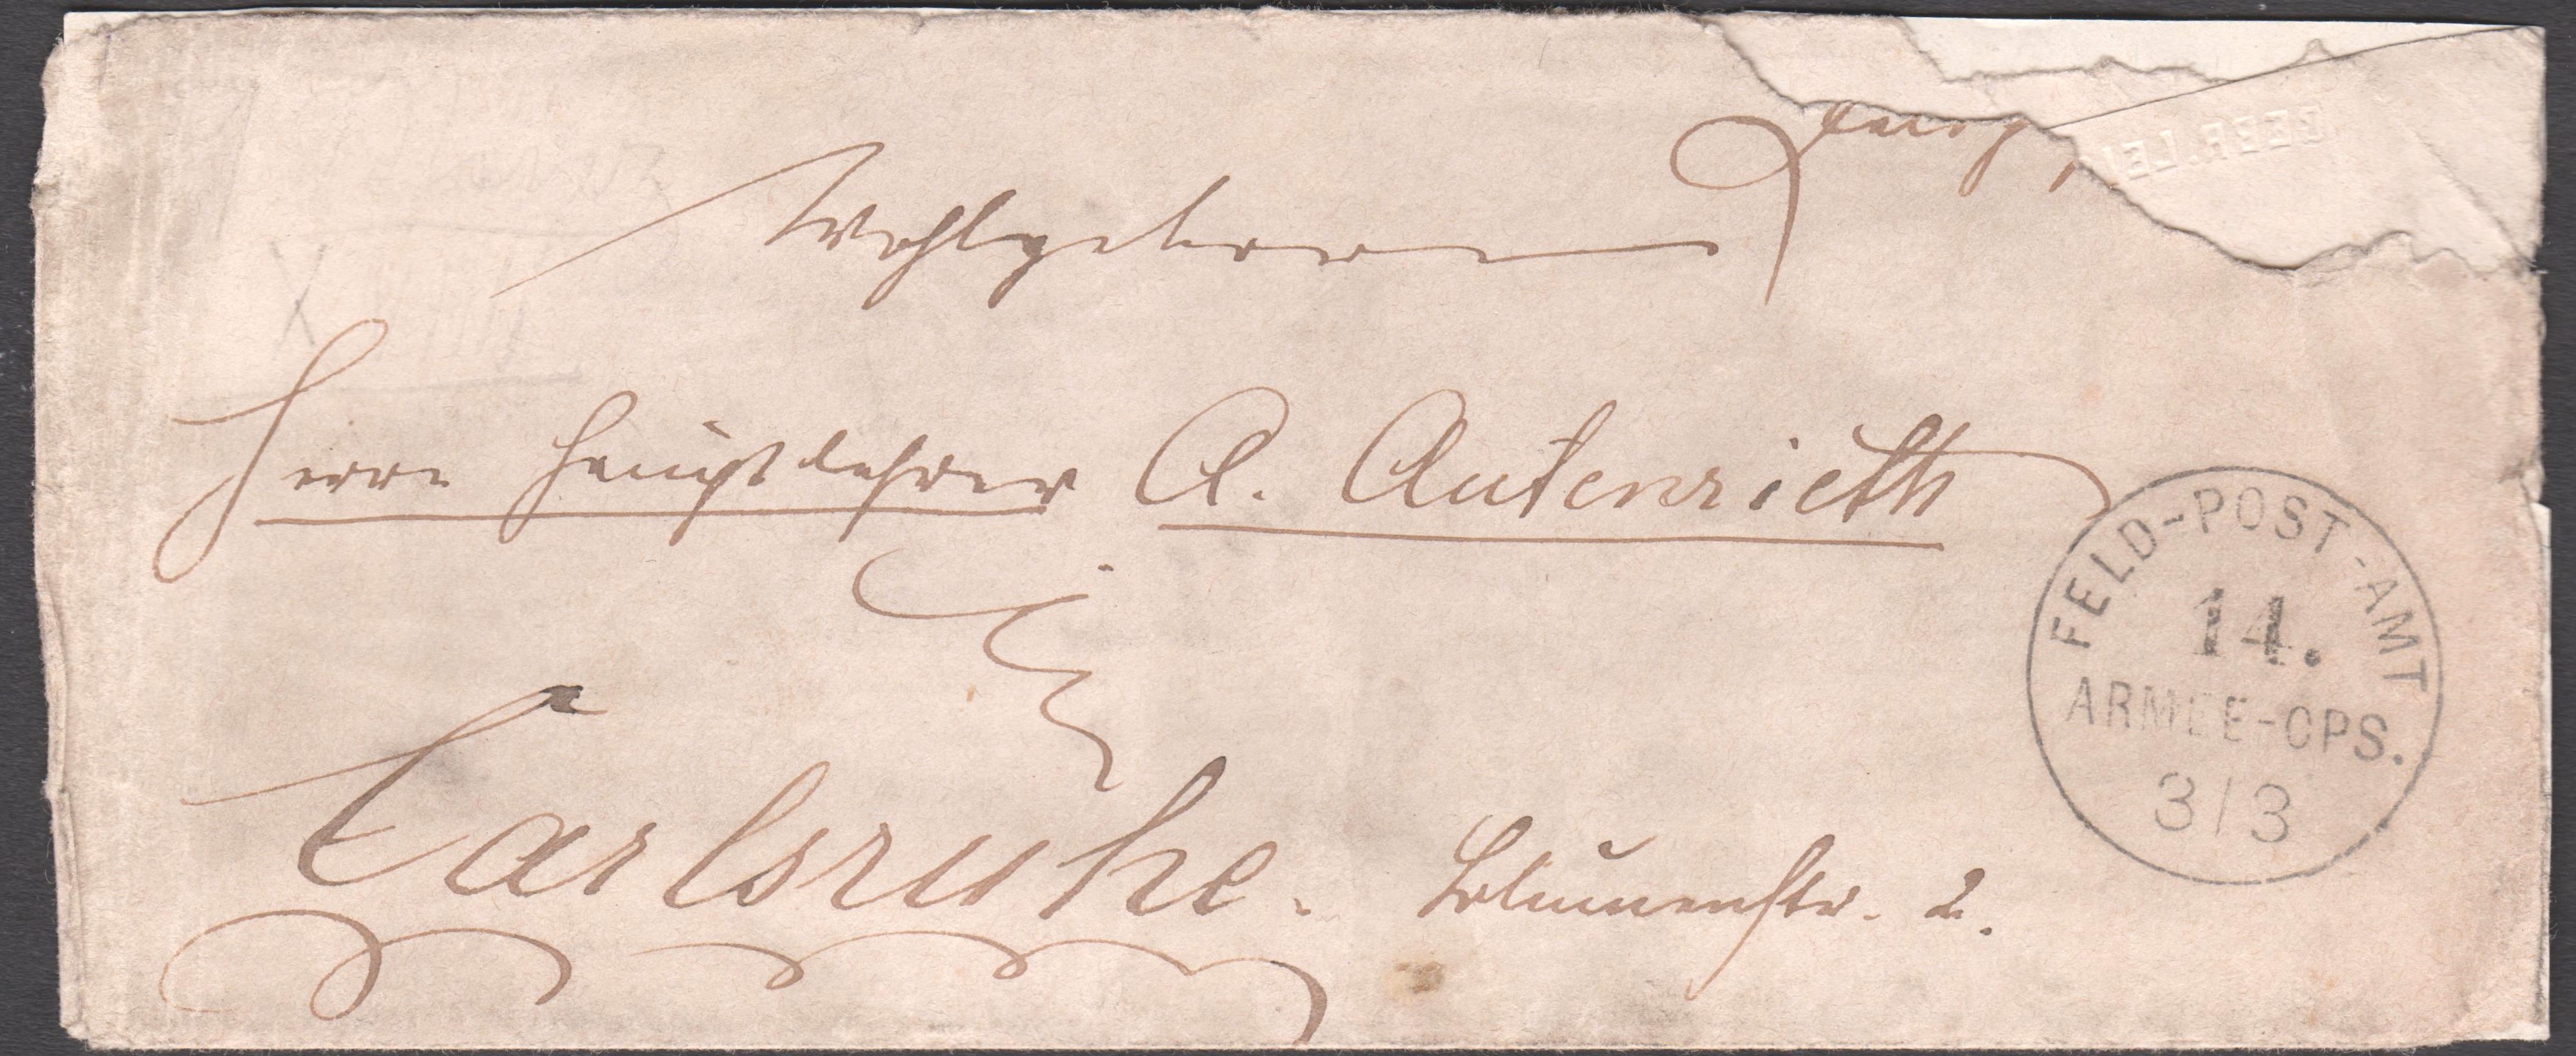 Wohlgeboren
Herrn Hauptlehrer A. Autenrieth
in
Carlsruhe. Blumenstr. 2.
FELD-POST-AMT
14.
ARMEE-CPS.
3/3